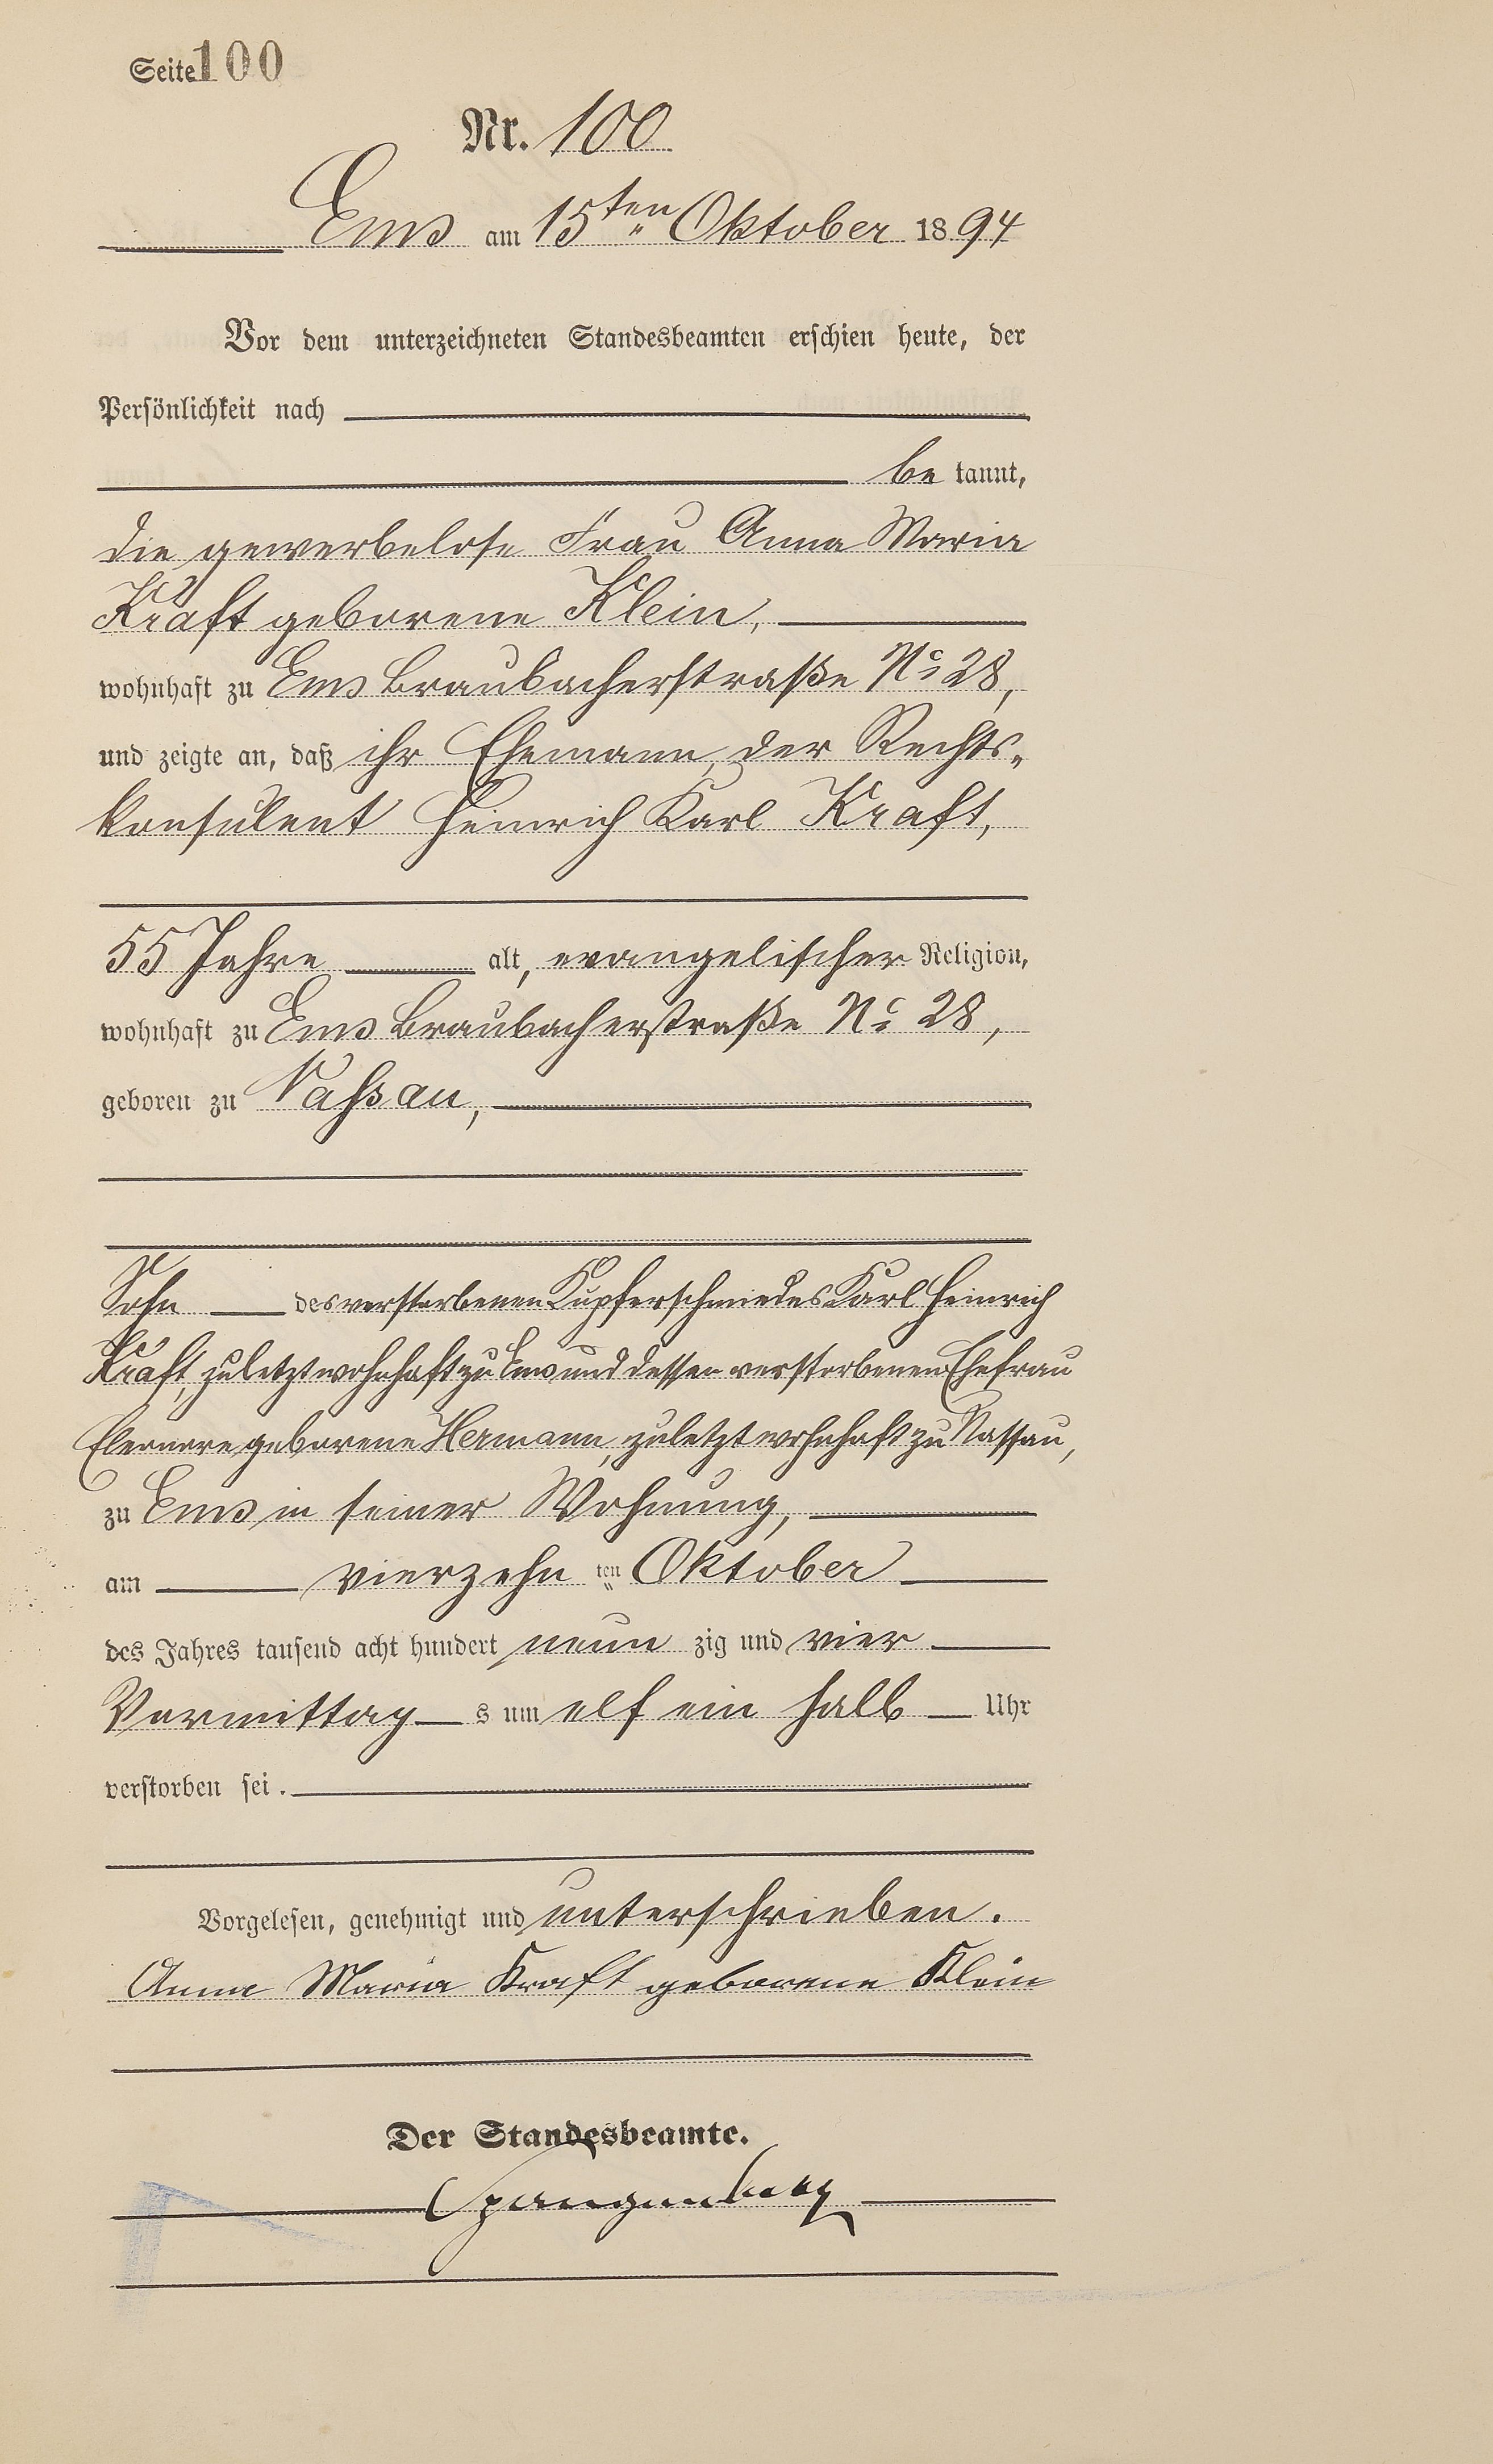 Seite 100
Nr. 100
Ems am 15ten Oktober 1894
Vor dem unterzeichneten Standesbeamten erschien heute, der
Persönlichkeit nach
be kannt,
die gewerbelose Frau Anna Maria
Kraft geborene Klein,
wohnhaft zu Ems Braubacherstraße No 28,
und zeigte an, daß ihr Ehemann, der Rechts-
konsulent Heinrich Karl Kraft,
55 Jahre alt, evangelischer Religion,
wohnhaft zu Ems Braubacherstraße No 28,
geboren zu Nassau,
Sohn des verstorbenen Kupferschmiedes Karl Heinrich
Kraft, zuletzt wohnhaft zu Ems und dessen verstorbenen Ehefrau
Eleonore geborene Hermann, zuletzt wohnhaft zu Nassau,
zu Ems in seiner Wohnung,
am vierzehn ten Oktober
des Jahres tausend acht hundert neun zig und vier
Vormittag s um elf ein halb Uhr
verstorben sei.
Vorgelesen, genehmigt und unterschrieben.
Anna Maria Kraft geborene Klein
Der Standesbeamte.
Spangenberg